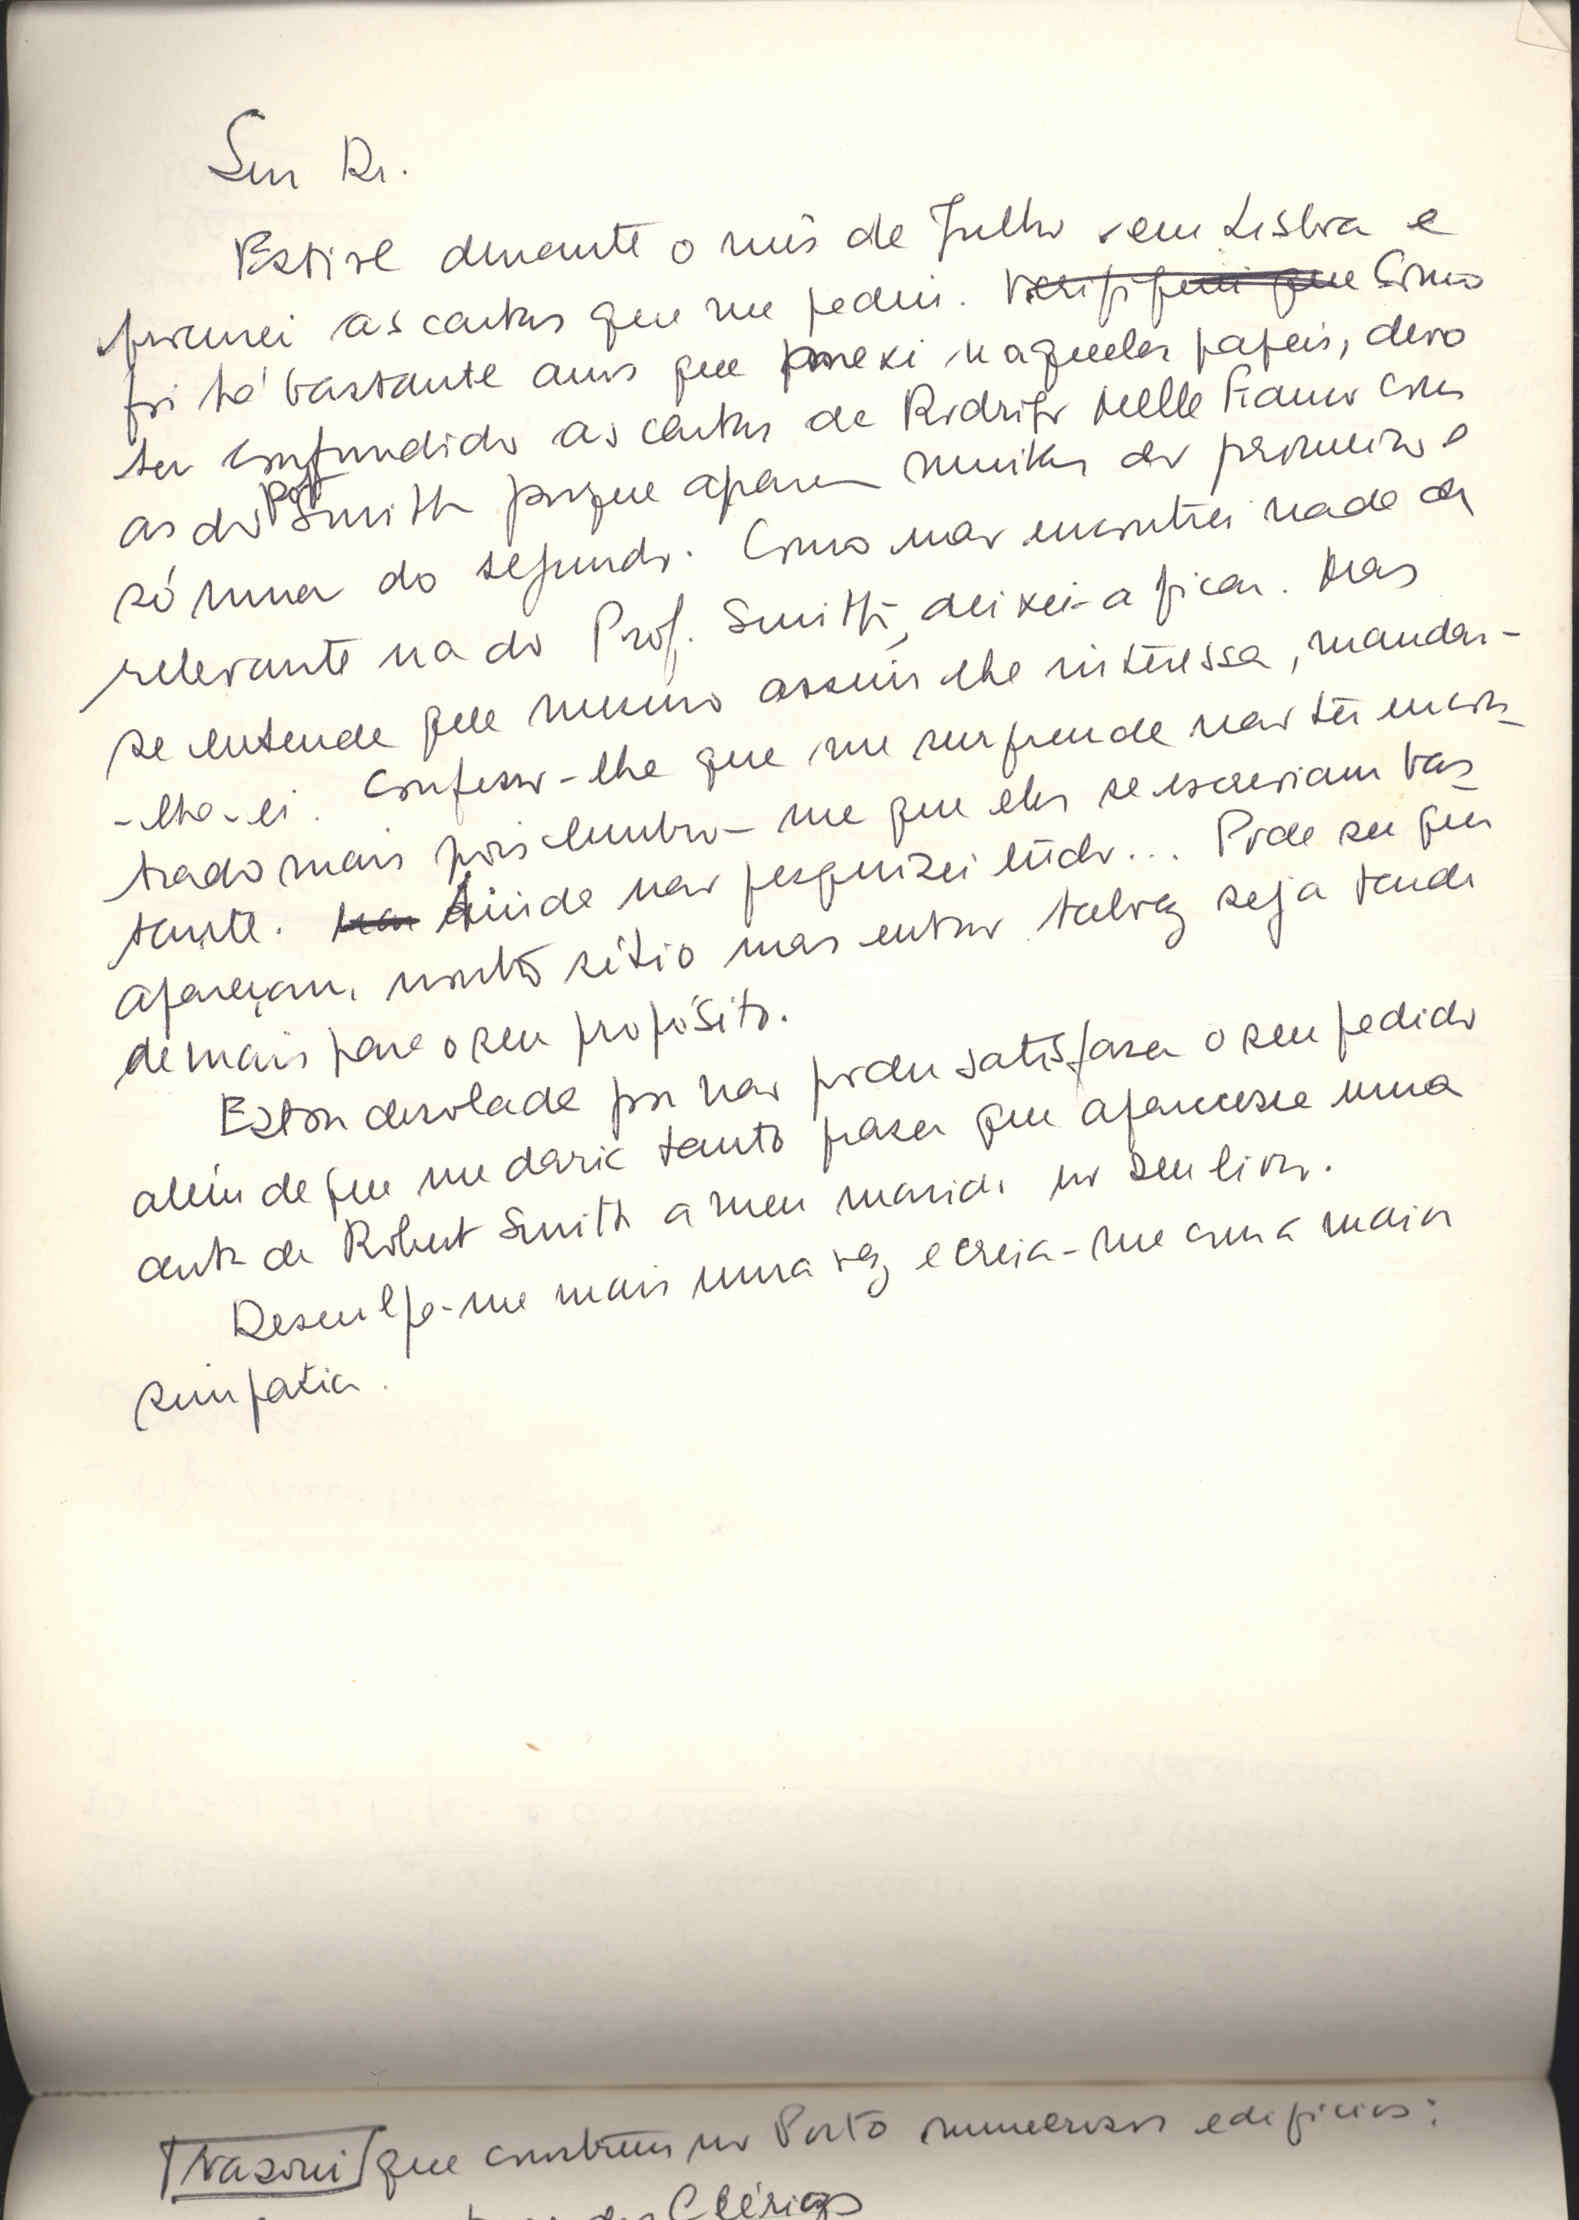 Sen Dr.
Estive durante o mês de Julho em Lisboa e
procurei as cartas que me pediu. Verifiquei que Como
foi há bastante anos que mexi naqueles papeis, devo
ter confundido as cartas de Rodrigo Mello Franco com
as do Prof Smith porque aparecem muitas do primeiro e
só uma do segundo. Como não encontrei nada de
relevante na do Prof. Smith, deixei-a ficar. Mas
se entende que mesmo assim lhe interessa, mandar-
-lha-ei. Confesso-lhe que me surpreende não ter encon-
trado mais pois lembro-me que eles se escreviam bas-
tante. Ainda não pesquizei tudo... Pode ser que
apareçam, noutro sítio mas então talvez seja tarde
demais para o seu propósito.
Estou desolada por não poder satisfazer o seu pedido
além de que me daria tanto prazer que aparecesse uma
carta de Robert Smith a meu marido no seu livro.
Desculpe-me mais uma vez e creia-me com a maior
simpatia.
Nasoni que construiu no Porto numerosos edifícios:
dos Clérigos